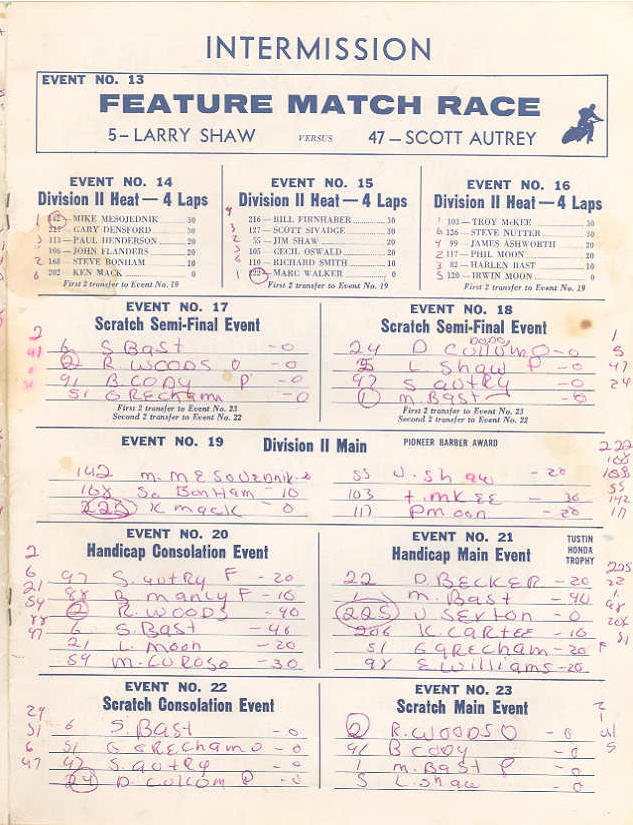 INTERMISSION
EVENT NO. 13
FEATURE MATCH RACE
5 – LARRY SHAW VERSUS 47 – SCOTT AUTREY
EVENT NO. 14
Division II Heat — 4 Laps
1 142 — MIKE MESOJEDNIK 30
217 — GARY DENSFORD 30
3 111 — PAUL HENDERSON 20
106 — JOHN FLANDERS 20
2 168 — STEVE BONHAM 10
6 202 KEN MACK 0
First 2 transfer to Event No. 19
EVENT NO. 15
Division II Heat — 4 Laps
4 216 — BILL FIRNHABER 30
3 127 — SCOTT SIVADGE 30
2 55 — JIM SHAW 20
5 105 — CECIL OSWALD 20
6 110 — RICHARD SMITH 10
1 222 — MARC WALKER 0
First 2 transfer to Event No. 19
EVENT NO. 16
Division II Heat — 4 Laps
1 103 — TROY McKEE 30
6 126 — STEVE NUTTER 30
4 99 — JAMES ASHWORTH 20
2 117 — PHIL MOON 20
3 82 — HARLEN BAST 10
5 120 — IRWIN MOON 0
First 2 transfer to Event No. 19
EVENT NO. 17
Scratch Semi-Final Event
2
6 S BAST -0
91
2 R WOODS O -0
91 B. CODY P -0
51 GRECham -0
First 2 transfer to Event No. 23
Second 2 transfer to Event No. 22
EVENT NO. 18
Scratch Semi-Final Event
1
24 D -0
5
5 L Shaw P -0
47
S autry -0
24
1 m. BAST -0
First 2 transfer to Event No. 23
Second 2 transfer to Event No. 22
EVENT NO. 19 Division II Main PIONEER BARBER AWARD
142 m.
168 S. BonHam - 10
225 K mack - 0
55 J. Shaw - 20
103 t. mKEE - 30
117 P moon - 20
55
142
117
EVENT NO. 20
Handicap Consolation Event
2
6
97 S. autry F - 20
21
88 B. mancy F - 10
59
2 R. WOODS - 40
88
6 S. BAST - 40
97
21 L. moon - 20
59 m. CUROSO - 30
EVENT NO. 21
Handicap Main Event
TUSTIN
HONDA
TROPHY
22 D. BECKER - 20
225
1 m. BAST - 40
22
225 J. SExton - 0
1
206 K. CARTEE - 10
98
51 G GRECham - 20 F
51
98 E williams - 20
EVENT NO. 22
Scratch Consolation Event
24
6 S. BAST - 0
51
51 G GRECham O - 0
6
S. autry - 0
47
24 D. P - 0
EVENT NO. 23
Scratch Main Event
2
2 R. WOODS O - 0
1
91 B CODY - 0
91
1 m. BAST P - 0
5
5 L. Shaw - 0